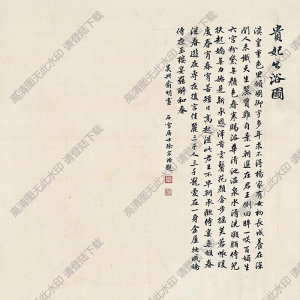 貴妃出浴圖
漢皇重色思傾國御宇多年求不得楊家有女初長成養在深
閨人未識天生麗質難自棄一朝選在君王側回眸一笑百媚生
六宮粉黛無顏色春寒賜浴華清池溫泉水滑洗凝脂侍兒
扶起嬌無力始是新承恩澤時雲鬢花顏金步搖芙蓉帳暖
度春宵春宵苦短日高起從此君王不早朝承歡侍宴無閒暇春
從春遊夜專夜後宮佳麗三千人三千寵愛在一身金屋妝成嬌
侍夜玉樓宴罷醉和春
吳興俞明畫 石雪居士徐宗浩題